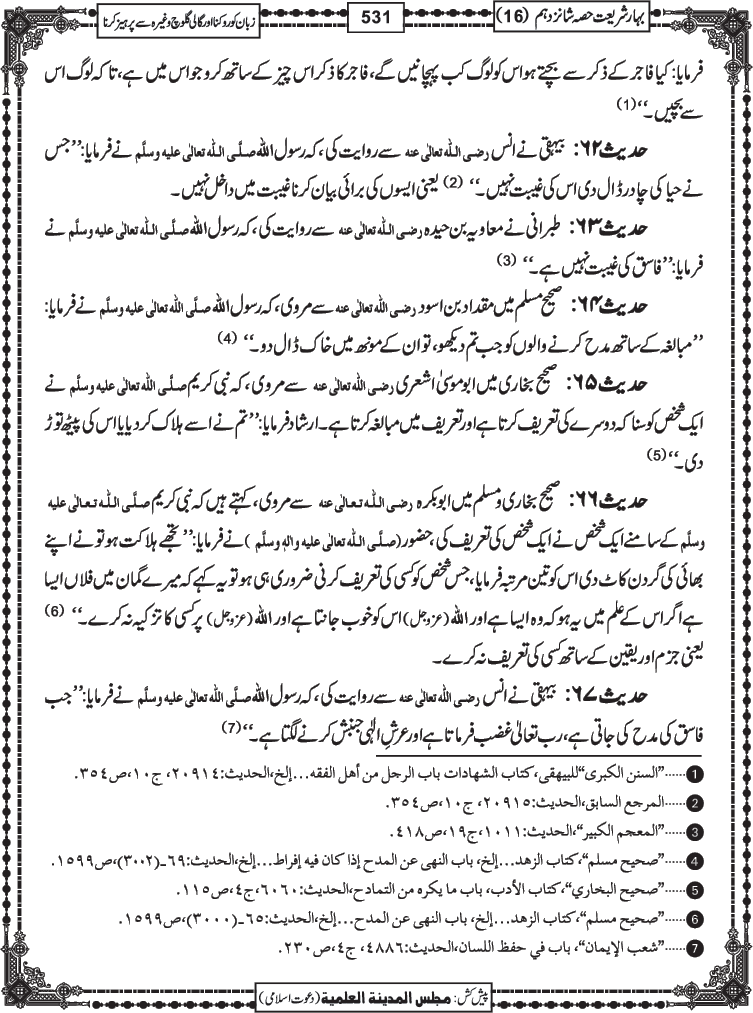 بہارِ شریعت حصہ شانزدہم (16)
531
زبان کو روکنا اور گالی گلوچ وغیرہ سے پرہیز کرنا
فرمایا: کیا فاجر کے ذکر سے بچتے ہو اس کو لوگ کب پہچانیں گے، فاجر کا ذکر اس چیز کے ساتھ کرو جو اس میں ہے، تاکہ لوگ اس
سے بچیں۔‘‘(1)
حدیث ۶۲: بیہقی نے انس رضی اللہ تعالٰی عنہ سے روایت کی، کہ رسول اللہ صلَّی اللہ تعالٰی علیہ وسلَّم نے فرمایا: ’’جس
نے حیا کی چادر ڈال دی اس کی غیبت نہیں۔‘‘ (2) یعنی ایسوں کی برائی بیان کرنا غیبت میں داخل نہیں۔
حدیث ۶۳: طبرانی نے معاویہ بن حیدہ رضی اللہ تعالٰی عنہ سے روایت کی، کہ رسول اللہ صلَّی اللہ تعالٰی علیہ وسلَّم نے
فرمایا: ’’فاسق کی غیبت نہیں ہے۔‘‘ (3)
حدیث ۶۴: صحیح مسلم میں مقداد بن اسود رضی اللہ تعالٰی عنہ سے مروی، کہ رسول اللہ صلَّی اللہ تعالٰی علیہ وسلَّم نے فرمایا:
’’مبالغہ کے ساتھ مدح کرنے والوں کو جب تم دیکھو، تو ان کے مونھ میں خاک ڈال دو۔‘‘ (4)
حدیث ۶۵: صحیح بخاری میں ابوموسیٰ اشعری رضی اللہ تعالٰی عنہ سے مروی، کہ نبی کریم صلَّی اللہ تعالٰی علیہ وسلَّم نے
ایک شخص کو سنا کہ دوسرے کی تعریف کرتا ہے اور تعریف میں مبالغہ کرتا ہے۔ ارشاد فرمایا: ’’تم نے اسے ہلاک کردیا یا اس کی پیٹھ توڑ
دی۔‘‘(5)
حدیث ۶۶: صحیح بخاری و مسلم میں ابوبکرہ رضی اللہ تعالٰی عنہ سے مروی، کہتے ہیں کہ نبی کریم صلَّی اللہ تعالٰی علیہ
وسلَّم کے سامنے ایک شخص نے ایک شخص کی تعریف کی، حضور (صلَّی اللہ تعالٰی علیہ واٰلہٖ وسلَّم) نے فرمایا: ’’تجھے ہلاکت ہو تو نے اپنے
بھائی کی گردن کاٹ دی اس کو تین مرتبہ فرمایا، جس شخص کو کسی کی تعریف کرنی ضروری ہی ہو تو یہ کہے کہ میرے گمان میں فلاں ایسا
ہے اگر اس کے علم میں یہ ہو کہ وہ ایسا ہے اور اللہ (عزوجل) اس کو خوب جانتا ہے اور اللہ (عزوجل) پر کسی کا تزکیہ نہ کرے۔‘‘ (6)
یعنی جزم اور یقین کے ساتھ کسی کی تعریف نہ کرے۔
حدیث ۶۷: بیہقی نے انس رضی اللہ تعالٰی عنہ سے روایت کی، کہ رسول اللہ صلَّی اللہ تعالٰی علیہ وسلَّم نے فرمایا: ’’جب
فاسق کی مدح کی جاتی ہے، رب تعالیٰ غضب فرماتا ہے اور عرشِ الٰہی جنبش کرنے لگتا ہے۔‘‘(7)
1 ......”السنن الكبرى“للبيهقي، كتاب الشهادات باب الرجل من أهل الفقه...إلخ، الحديث:٢٠٩١٤، ج١٠، ص٣٥٤.
2 ......المرجع السابق، الحديث:٢٠٩١٥، ج١٠، ص٣٥٤.
3 ......”المعجم الكبير“، الحديث:١٠١١، ج١٩، ص٤١٨.
4 ......”صحيح مسلم“، كتاب الزهد...إلخ، باب النهى عن المدح إذا كان فيه إفراط...إلخ، الحديث:٦٩ـ(٣٠٠٢)، ص١٥٩٩.
5 ......”صحيح البخاري“، كتاب الأدب، باب ما يكره من التمادح، الحديث:٦٠٦٠، ج٤، ص١١٥.
6 ......”صحيح مسلم“، كتاب الزهد...إلخ، باب النهى عن المدح...إلخ، الحديث:٦٥ـ(٣٠٠٠)، ص١٥٩٩.
7 ......”شعب الإيمان“، باب في حفظ اللسان، الحديث:٤٨٨٦، ج٤، ص٢٣٠.
پیش کش: مجلس المدینۃ العلمیۃ (دعوت اسلامی)